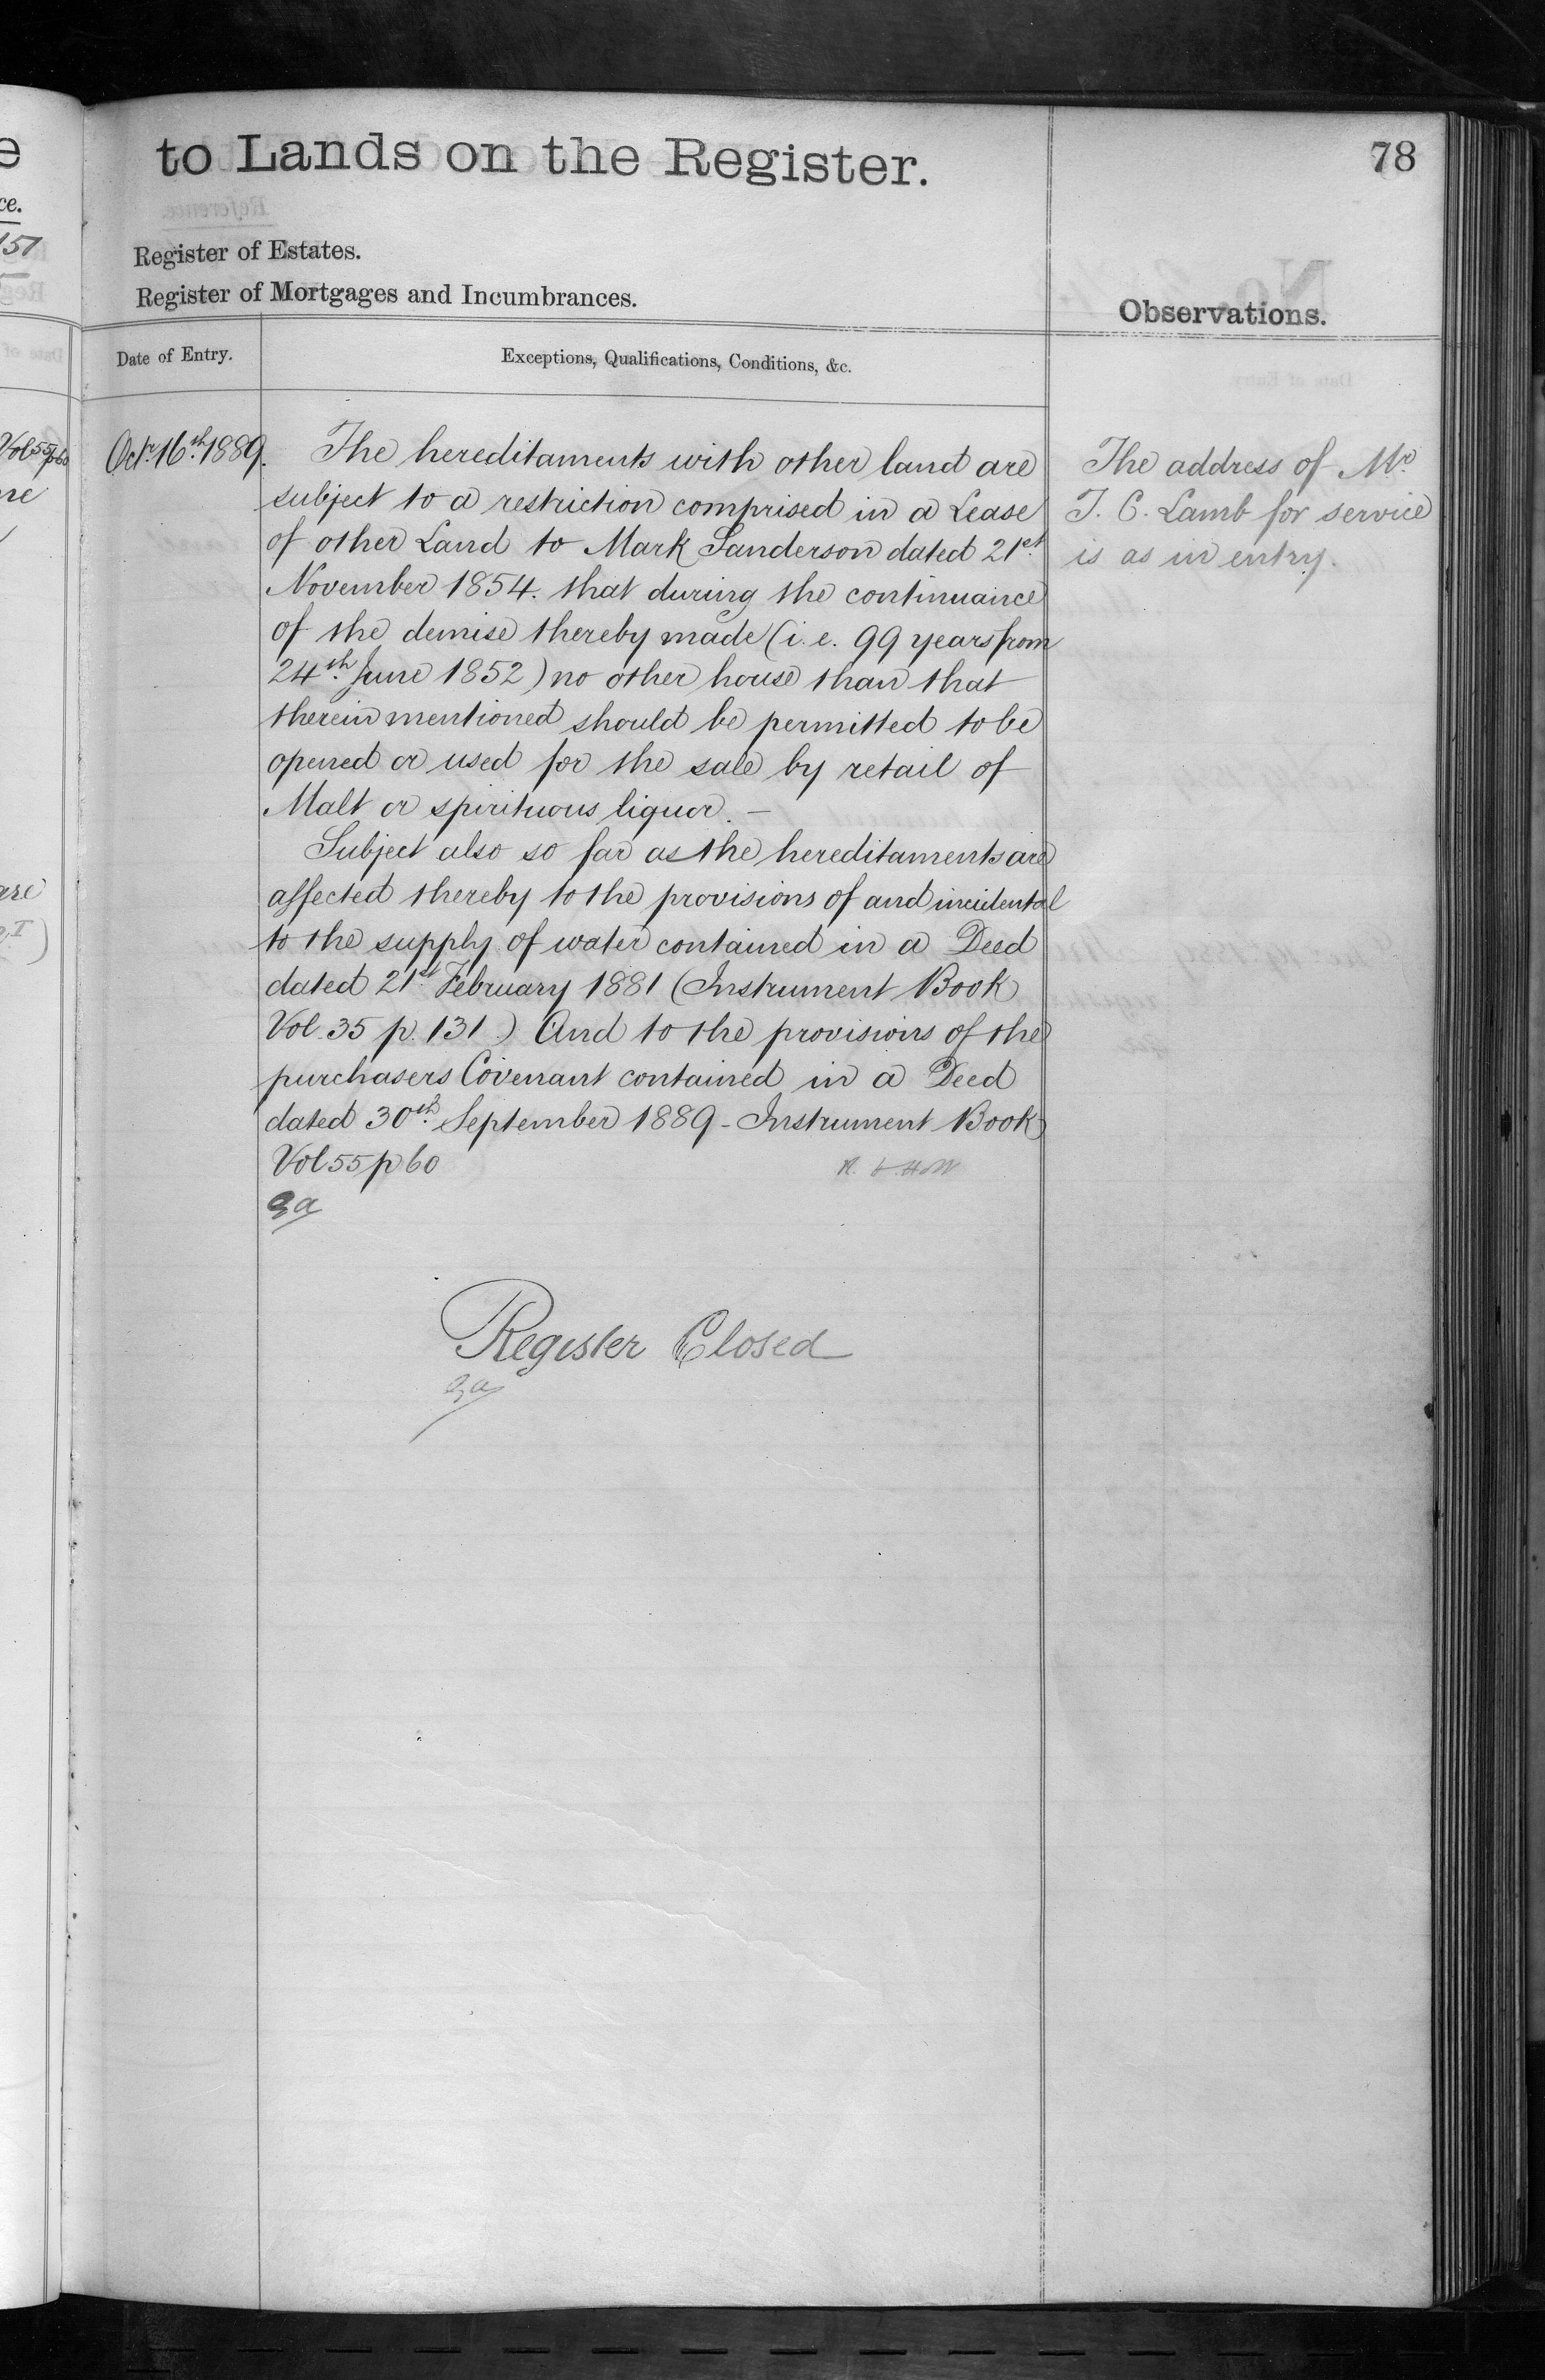 to Lands on the Register.
78
Register of Estates.
Register of Mortgages and Incumbrances.
Observations.
Date of Entry.
Exceptions, Qualifications, Conditions, &c.
Octr. 16th. 1889.
The hereditaments with other land are
subject to a restriction comprised in a Lease
of other Land to Mark Sanderson dated 21st.
November 1854. that during the continuance
of the demise thereby made (i.e. 99 years from
24th. June 1852) no other house than that
therein mentioned should be permitted to be
opened or used for the sale by retail of
Malt or spirituous liquor. —
Subject also so far as the hereditaments are
affected thereby to the provisions of and incidental
to the supply of water contained in a Deed
dated 21st. February 1881 (Instrument Book
Vol. 35 p. 131.) And to the provisions of the
purchasers Covenant contained in a Deed
dated 30th. September 1889 - Instrument Book
Vol 55 p 60
Register Closed
The address of Mr.
T. C. Lamb for service
is as in entry.
ce.
151
Vol 55 p 60